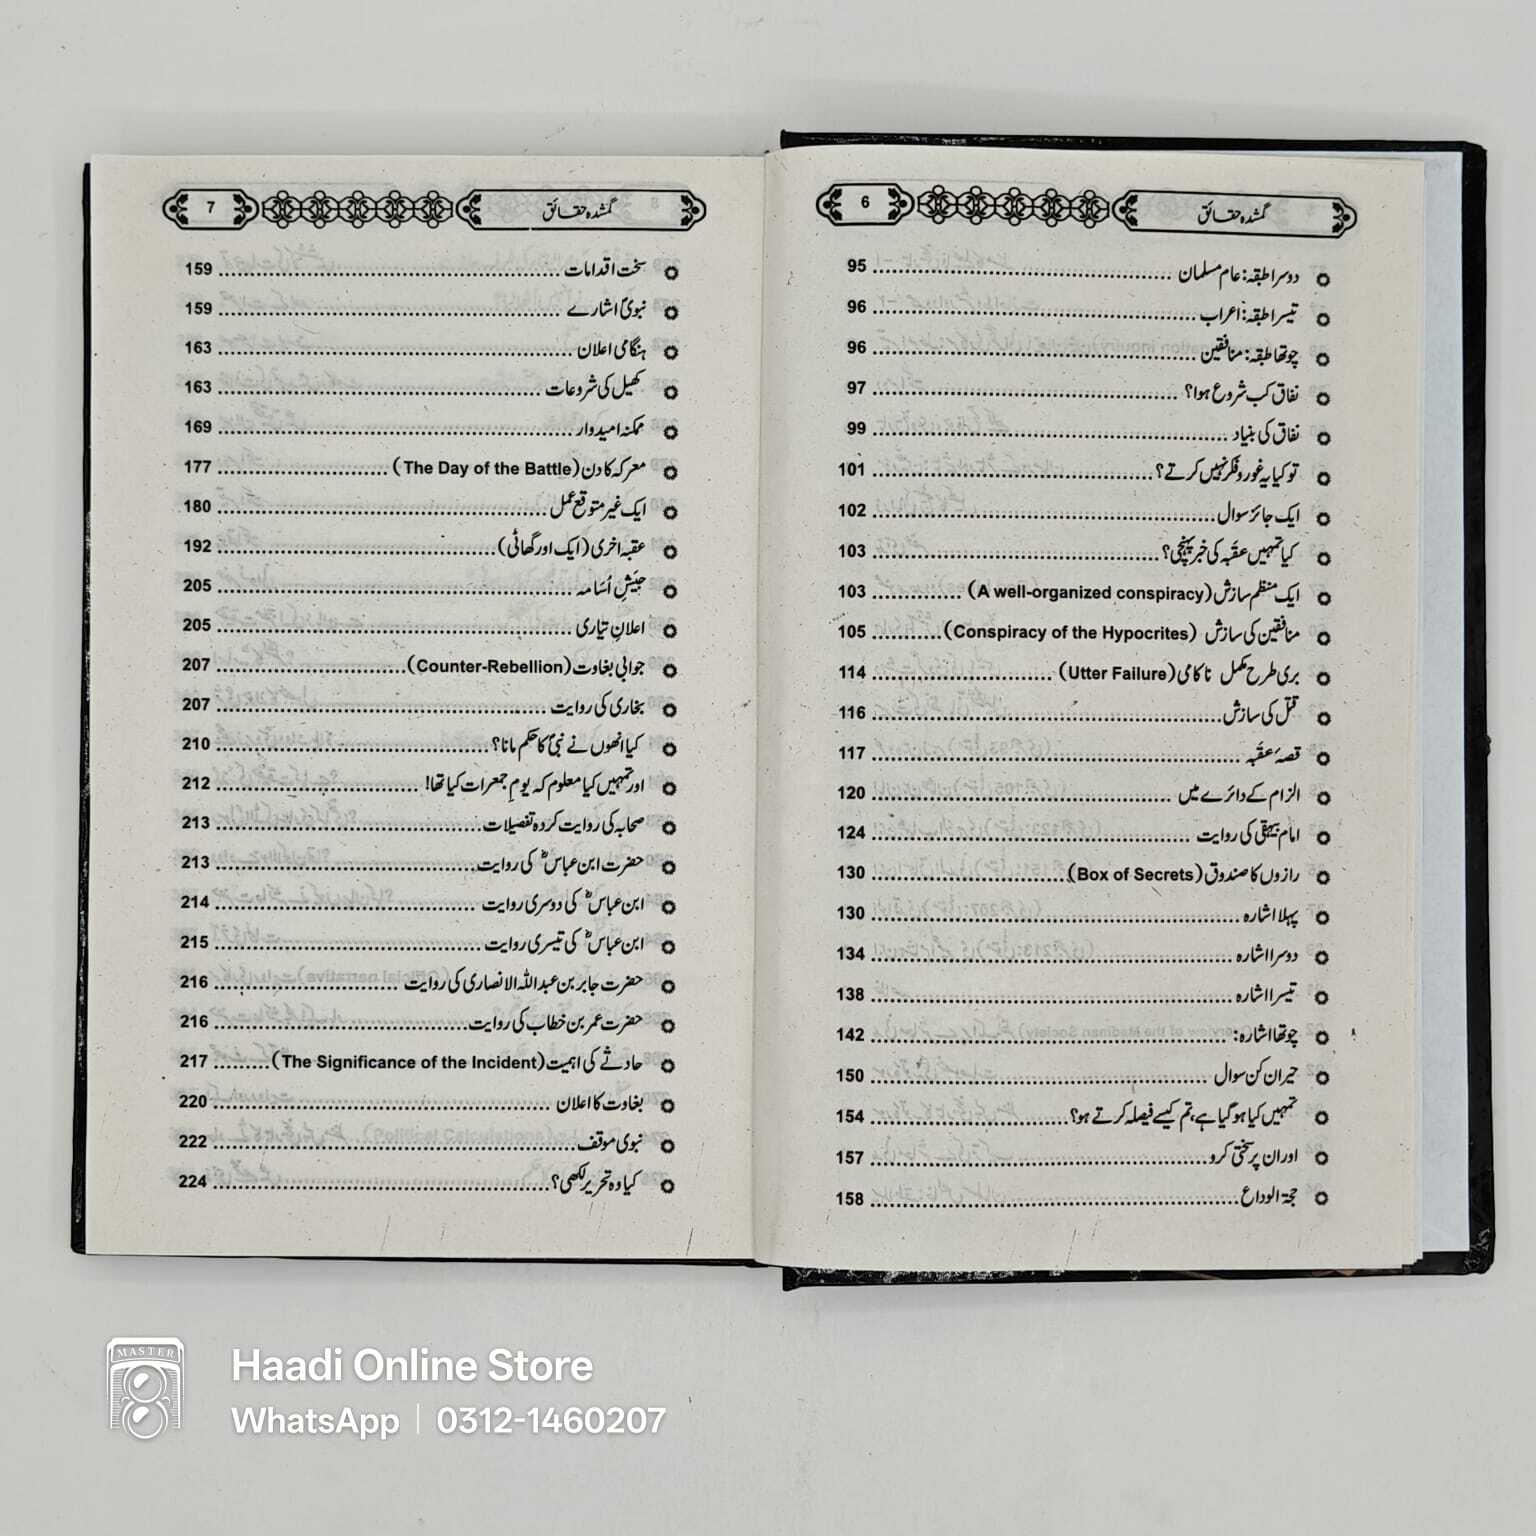 گمشدہ حقائق 6
دوسرا طبقہ: عام مسلمان 95
تیسرا طبقہ: اعراب 96
چوتھا طبقہ: منافقین 96
نفاق کب شروع ہوا؟ 97
نفاق کی بنیاد 99
تو کیا یہ غور و فکر نہیں کرتے؟ 101
ایک جائز سوال 102
کیا تمہیں عقبہ کی خبر پہنچی؟ 103
ایک منظم سازش (A well-organized conspiracy) 103
منافقین کی سازش (Conspiracy of the Hypocrites) 105
بری طرح مکمل ناکامی (Utter Failure) 114
قتل کی سازش 116
قصۂ عقبہ 117
الزام کے دائرے میں 120
امام بیہقی کی روایت 124
رازوں کا صندوق (Box of Secrets) 130
پہلا اشارہ 130
دوسرا اشارہ 134
تیسرا اشارہ 138
چوتھا اشارہ: 142
حیران کن سوال 150
تمہیں کیا ہو گیا ہے، تم کیسے فیصلہ کرتے ہو؟ 154
اور ان پر سختی کرو 157
حجۃ الوداع 158
گمشدہ حقائق 7
سخت اقدامات 159
نبویؐ اشارے 159
ہنگامی اعلان 163
کھیل کی شروعات 163
ممکنہ امیدوار 169
معرکہ کا دن (The Day of the Battle) 177
ایک غیر متوقع عمل 180
عقبہ اخری (ایک اور گھاٹی) 192
جیشِ اُسامہ 205
اعلانِ تیاری 205
جوابی بغاوت (Counter-Rebellion) 207
بخاری کی روایت 207
کیا انھوں نے نبیؐ کا حکم مانا؟ 210
اور تمہیں کیا معلوم کہ یومِ جمعرات کیا تھا! 212
صحابہ کی روایت کردہ تفصیلات 213
حضرت ابن عباسؓ کی روایت 213
ابن عباسؓ کی دوسری روایت 214
ابن عباسؓ کی تیسری روایت 215
حضرت جابر بن عبداللہ الانصاری کی روایت 216
حضرت عمر بن خطاب کی روایت 216
حادثے کی اہمیت (The Significance of the Incident) 217
بغاوت کا اعلان 220
نبوی موقف 222
کیا وہ تحریر لکھی؟ 224
MASTER
Haadi Online Store
WhatsApp | 0312-1460207